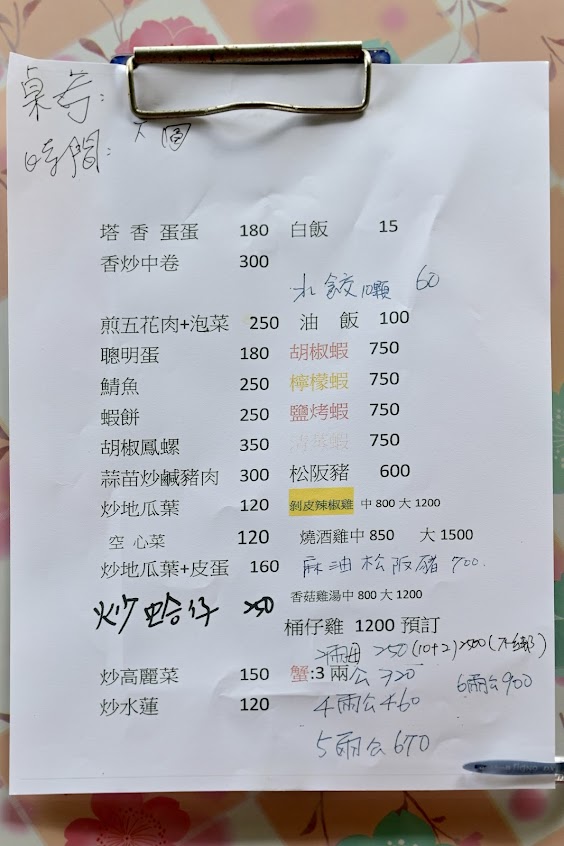 桌号:
時間:
塔 香 蛋蛋 180 白飯 15
香炒中卷 300
水餃10顆 60
煎五花肉+泡菜 250 油 飯 100
聰明蛋 180 胡椒蝦 750
鯖魚 250 檸檬蝦 750
蝦餅 250 鹽烤蝦 750
胡椒鳳螺 350 清蒸蝦 750
蒜苗炒鹹豬肉 300 松阪豬 600
炒地瓜葉 120 剝皮辣椒雞 中 800 大 1200
空 心菜 120 燒酒雞中 850 大 1500
炒地瓜葉+皮蛋 160 麻油松阪豬 700.
香菇雞湯中 800 大 1200
炒蛤仔 250
桶仔雞 1200 預訂
250 (10+2) 2500
炒高麗菜 150 蟹:3 兩公320
6兩公900
炒水蓮 120 4兩公460
5兩公670